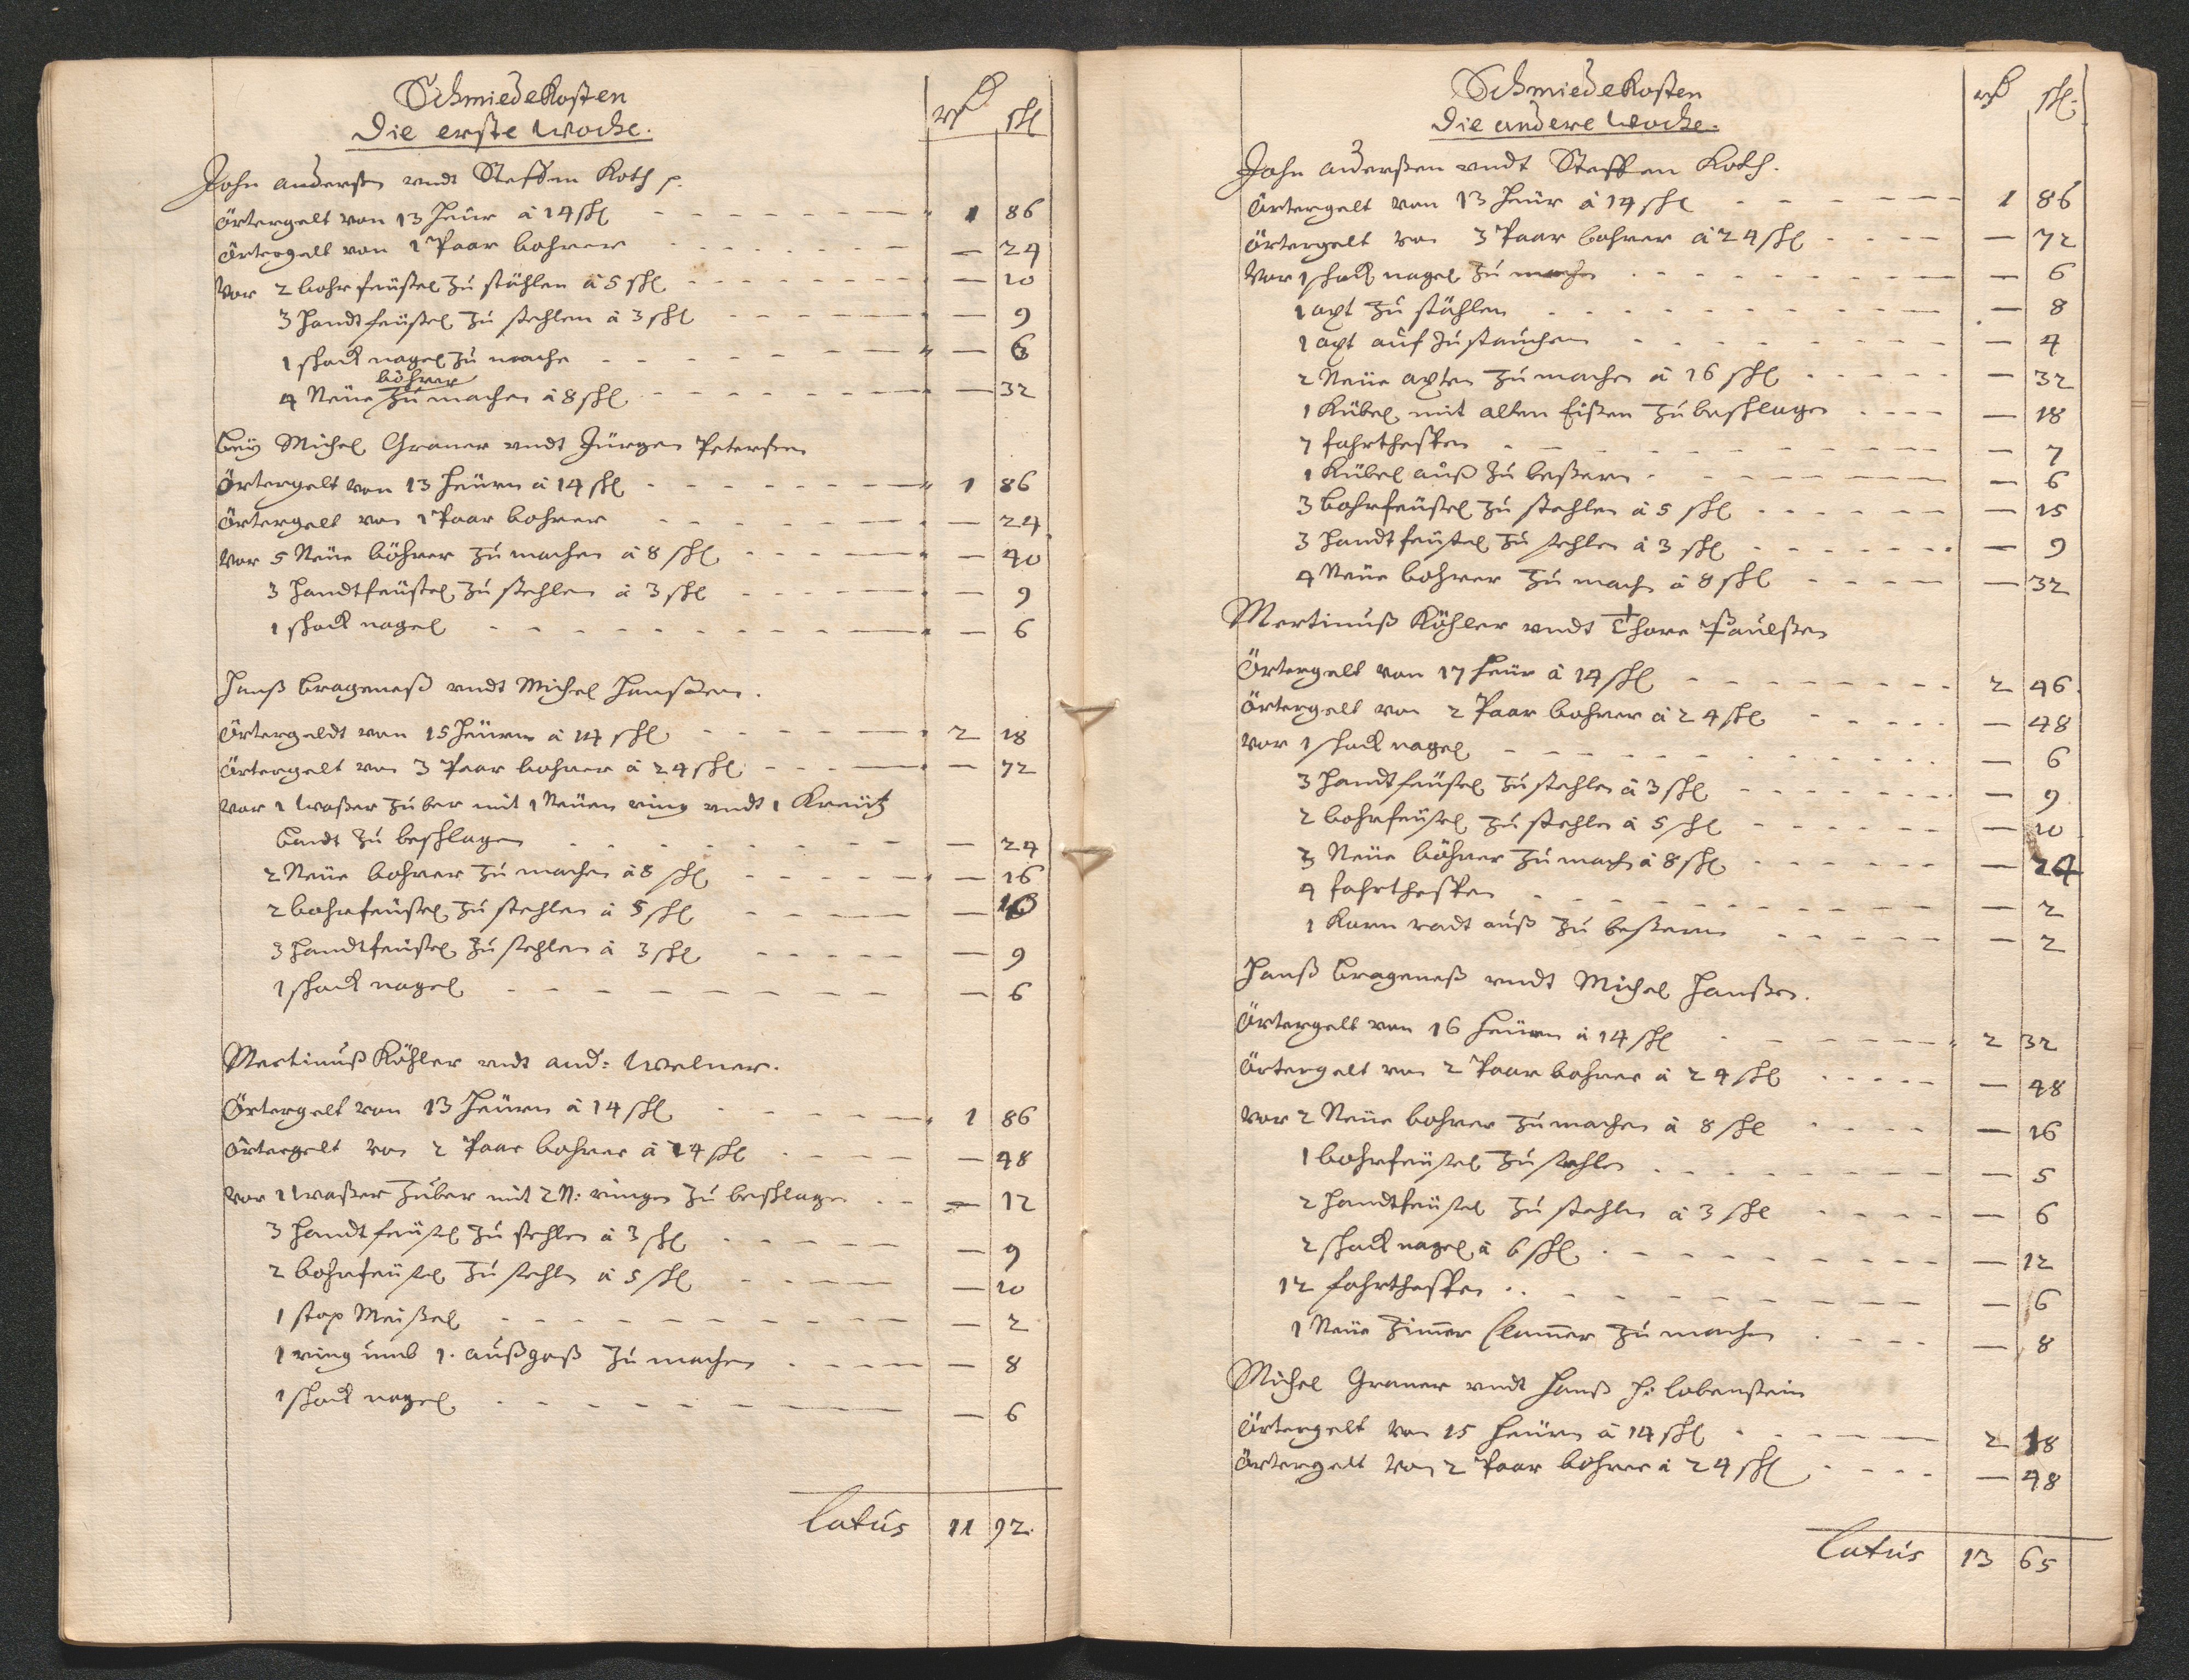 Schmiedekosten
Die erste Woche.
rth schl
John andersen undt Steffen Koth p.
Örtergelt von 13 Heür â 14 schl 1 86
Örtergelt von 1 Paar bohrer — 24
Vor 2 bohrfeüstel zu stählen â 5 schl — 10
3 Handtfeüstel zu stehlen â 3 schl — 9
1 schock nagel zu mache — 6
böhrer
4 Neüe zu machen â 8 schl — 32
Beÿ Michel Graner undt Jürgen Petersen
Örtergelt von 13 Heüren â 14 schl 1 86
Örtergelt von 1 Paar bohrer — 24
Vor 5 Neüe böhrer zu machen â 8 schl — 40
3 Handtfeüstel zu stehlen â 3 schl — 9
1 schock nagel — 6
Hanß Brageneß undt Michel Hanßen.
Örtergeldt von 15 Heüren â 14 schl 2 18
Örtergelt von 3 Paar bohrer â 24 schl — 72
Vor 1 Waßer zuber mit 1 Neüen ring undt 1 Kreütz
bandt zu beschlagen — 24
2 Neüe bohrer zu machen â 8 schl — 16
2 bohrfeüstel zu stehlen â 5 schl — 10
3 Handtfeüstel zu stehlen â 3 schl — 9
1 schock nagel — 6
Martinuß Köhler undt and: Welner.
Örtergelt von 13 Heüren â 14 schl 1 86
Örtergelt von 2 Paar bohrer â 24 schl — 48
Vor 1 Waßer zuber mit 2 N: ringen zu beschlagen — 12
3 Handtfeüstel zu stehlen â 3 schl — 9
2 bohrfeüstel zu stehlen â 5 schl — 10
1 stop Meißel — 2
1 ring umb 1. außgoß zu machen — 8
1 schock nagel — 6
Latus 11 92.
Schmiedekosten
Die andere Woche.
rth schl.
John anderßen undt Steffen Koth.
Örtergelt von 13 Heür â 14 schl 1 86
Örtergelt von 3 Paar bohrer â 24 schl — 72
Vor 1 schock nagel zu machen — 6
1 axt zu stählen — 8
1 axt auf zu stauchen — 4
2 Neüe axten zu machen â 16 schl — 32
1 Kübel mit alten Eißen zu beschlagen — 18
7 fahrthespen — 7
1 Kübel auß zu beßern — 6
3 bohrfeüstel zu stehlen â 5 schl — 15
3 Handtfeüstel zu stehlen â 3 schl — 9
4 Neüe bohrer zu mach â 8 schl — 32
Martinuß Köhler undt Thore Paulßen
Örtergelt von 17 Heür â 14 schl 2 46
Örtergelt von 2 Paar bohrer â 24 schl — 48
Vor 1 schock nagel — 6
3 Handtfeüstel zu stehlen â 3 schl — 9
2 bohrfeüstel zu stehlen â 5 schl — 10
3 Neüe böhrer zu mach â 8 schl — 24
4 fahrthespen — 2
1 Karn radt auß zu beßern — 2
Hanß Brageneß undt Michel Hanßen.
Örtergelt von 16 Heüren â 14 schl 2 32
Örtergelt von 2 Paar bohrer â 24 schl — 48
Vor 2 Neüe bohrer zu machen â 8 schl — 16
1 bohrfeüstel zu stehlen — 5
2 Handtfeüstel zu stehlen â 3 schl — 6
2 schock nagel â 6 schl — 12
12 fahrthespen — 6
1 Neüe Zimer Clamer zu machen — 8
Michel Graner undt Hanß H: Lobenstein
Örtergelt von 15 Heüren â 14 schl 2 18
Örtergelt von 2 Paar bohrer â 24 schl — 48
Latus 13 65